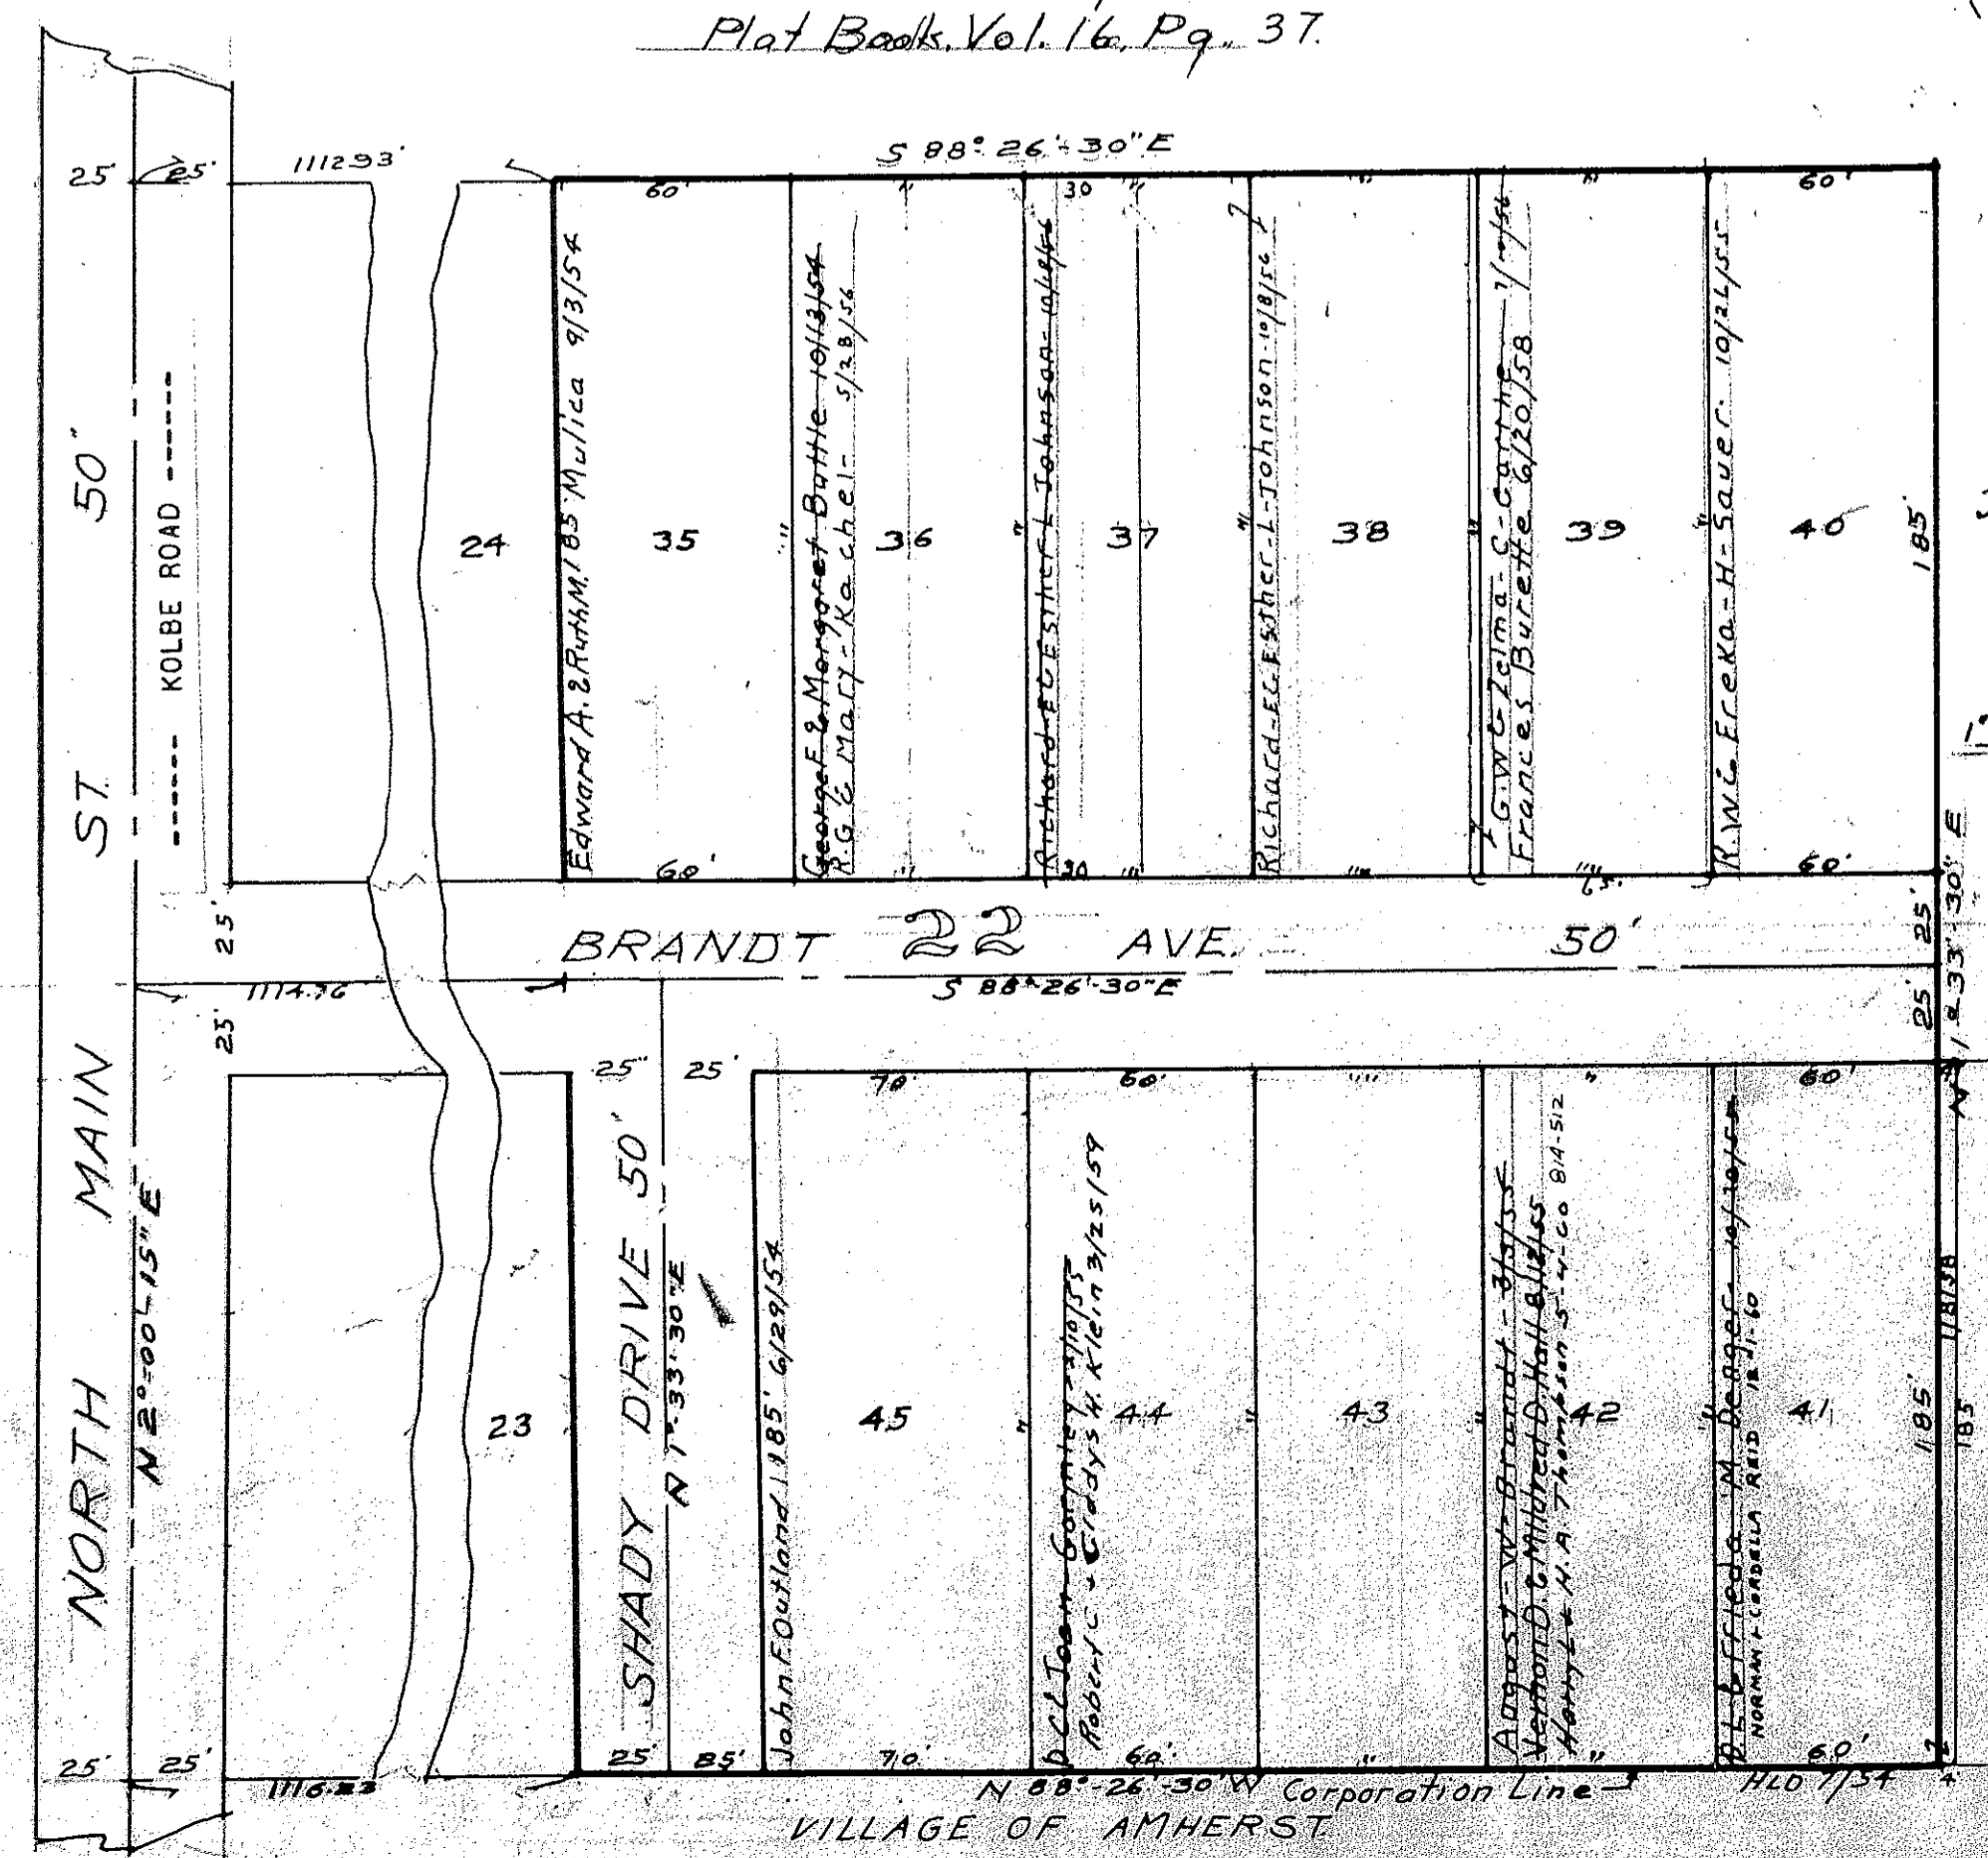 Plat Book. Vol. 16, Pg. 37.
S 88° 26'-30" E
25' 25' 1112.93'
60' " 30 " " " 60'
NORTH MAIN ST. 50'
------ KOLBE ROAD ------
N 2°-00'-15" E
24
Edward A. & Ruth M. Mulica 9/3/54
185'
35
George F. & Margaret Buttle 10/13/54
R.G. & Mary - Kachel - 5/28/56
36
Richard - E & Esther L Johnson - 10/18/56
37
Richard - E & Esther - L - Johnson - 10/8/56
38
G. W. & Zelma - C -
Frances Burette 6/20/58
39
R. W. & Ereka - H - Sauer. 10/26/55
40
185'
60' " 30 " " " 65' 60'
25' BRANDT 22 AVE. 50' 25'
1114.76 S 88°-26'-30" E
25' 25'
N 1°-33'-30" E
25' 25' 70' 60' " " 60'
23
SHADY DRIVE 50'
N 1°-33'-30" E
John F Outland 6/29/54
185'
45
D C & Joan Gormley - 2/10/55
Robert C. + Gladys H. Klein 3/25/59
44
43
August - W - Brandt - 3/3/55
Vernon D. & Mildred D. Hall 8/12/55
Harry L & H. A. Thompson 5-4-60 814-512
42
D L & Frieda M Denger 10/20/54
NORMAN + CORDELLA REID 12-1-60
41
185'
185
25' 25' 1116.23 25' 85' 70' 60' " " 60'
N 88°-26'-30" W Corporation Line
HLD 7/54
VILLAGE OF AMHERST